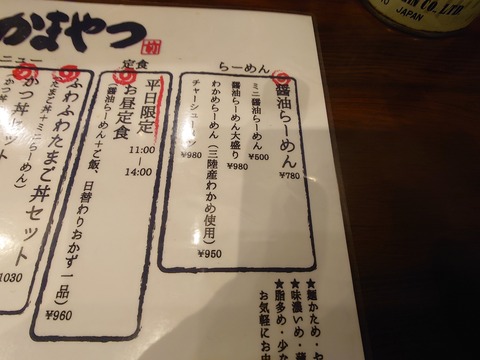 かまやつ
らーめん
醤油らーめん ¥780
ミニ醤油らーめん ¥500
醤油らーめん大盛り ¥980
わかめらーめん(三陸産わかめ使用) ¥950
チャーシュー ¥980
定食
平日限定
お昼定食
11:00
14:00
(醤油らーめん+ご飯、日替わりおかず一品)
¥960
ニュー
ふわふわたまご丼セット
たまご丼+ミニらーめん)
1030
かつ丼
かつ丼
★麺かため・
★味濃いめ・
★脂多め・少な
お気軽にお
CO., LTD.
JAPAN